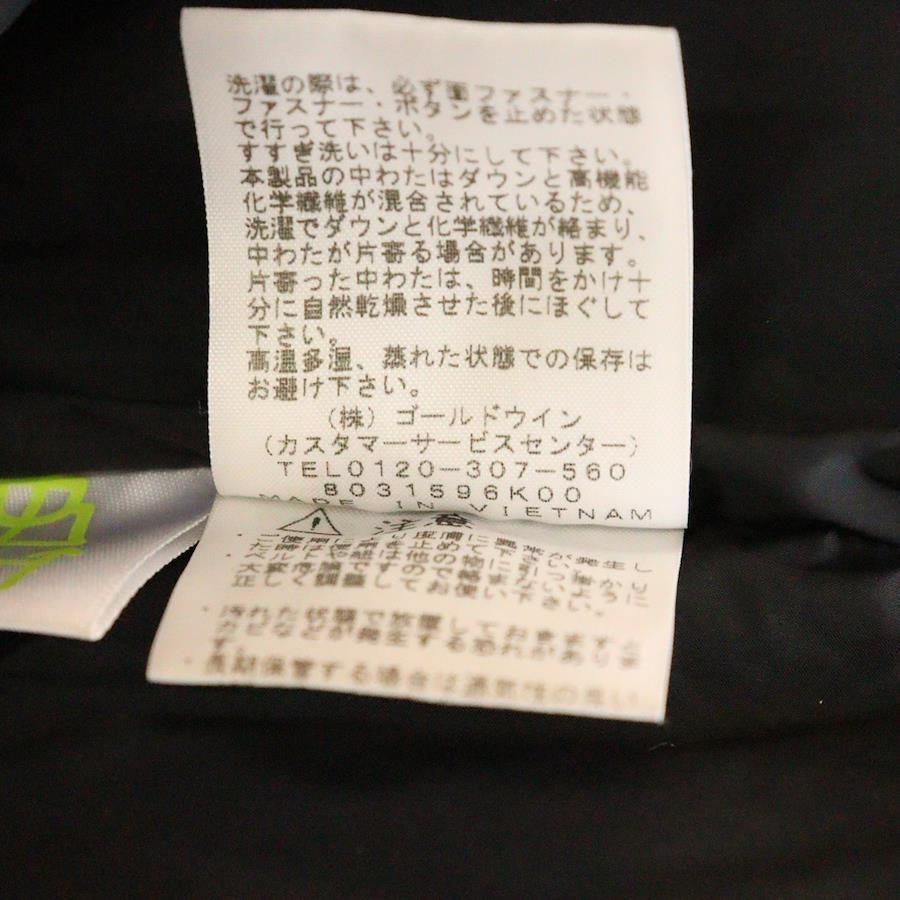 洗濯の際は、必ず面ファスナー・
ファスナー・ボタンを止めた状態
で行って下さい。
すすぎ洗いは十分にして下さい。
本製品の中わたはダウンと高機能
化学繊維が混合されているため、
洗濯でダウンと化学繊維が絡まり、
中わたが片寄る場合があります。
片寄った中わたは、時間をかけ十
分に自然乾燥させた後にほぐして
下さい。
高温多湿、蒸れた状態での保存は
お避け下さい。
(株) ゴールドウイン
(カスタマーサービスセンター)
TEL0120-307-560
8031596K00
MADE IN VIETNAM
注意
正しく調整してお使い下さい。
・汚れた状態で放置しておきますと
カビなどが発生する恐れがありま
す。
・長期保管する場合は通気性の良い